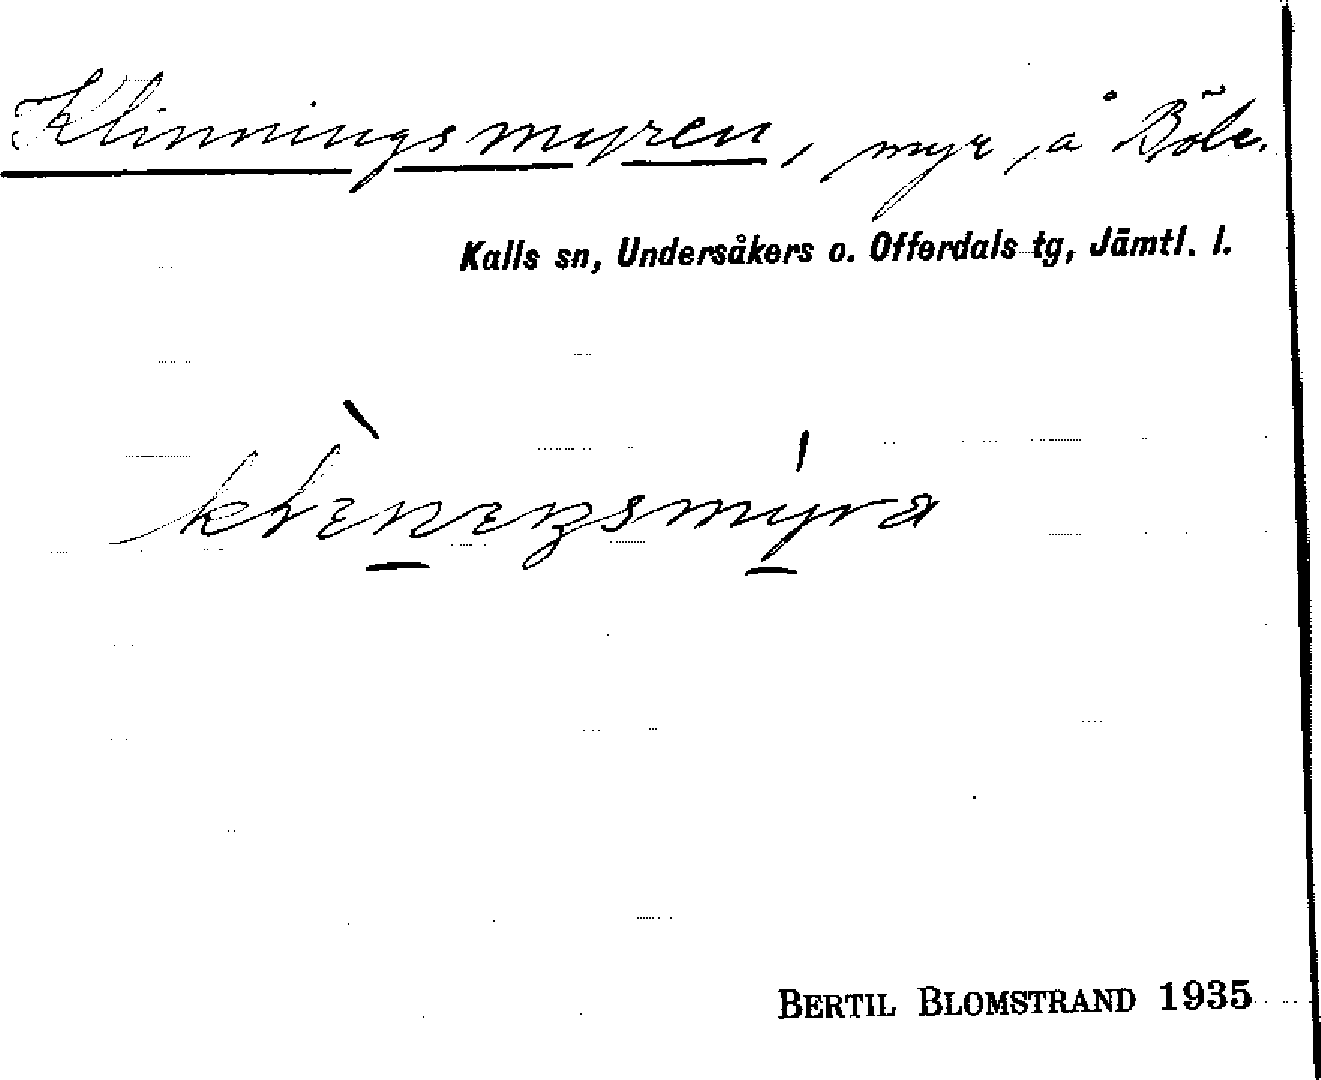 Klinningsmyren, myr, å Böle.
Kalls sn, Undersåkers o. Offerdals tg, Jämtl. l.
BERTIL BLOMSTRAND 1935